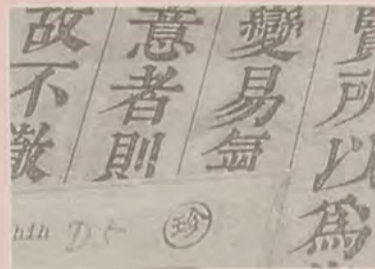 賢所以爲
變易氣
意者則
故不敢
珍